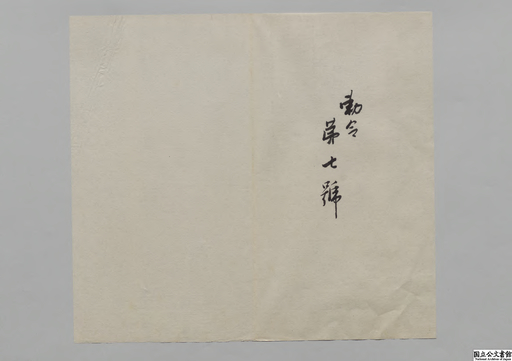 勅令
第七號
国立公文書館
National Archives of Japan